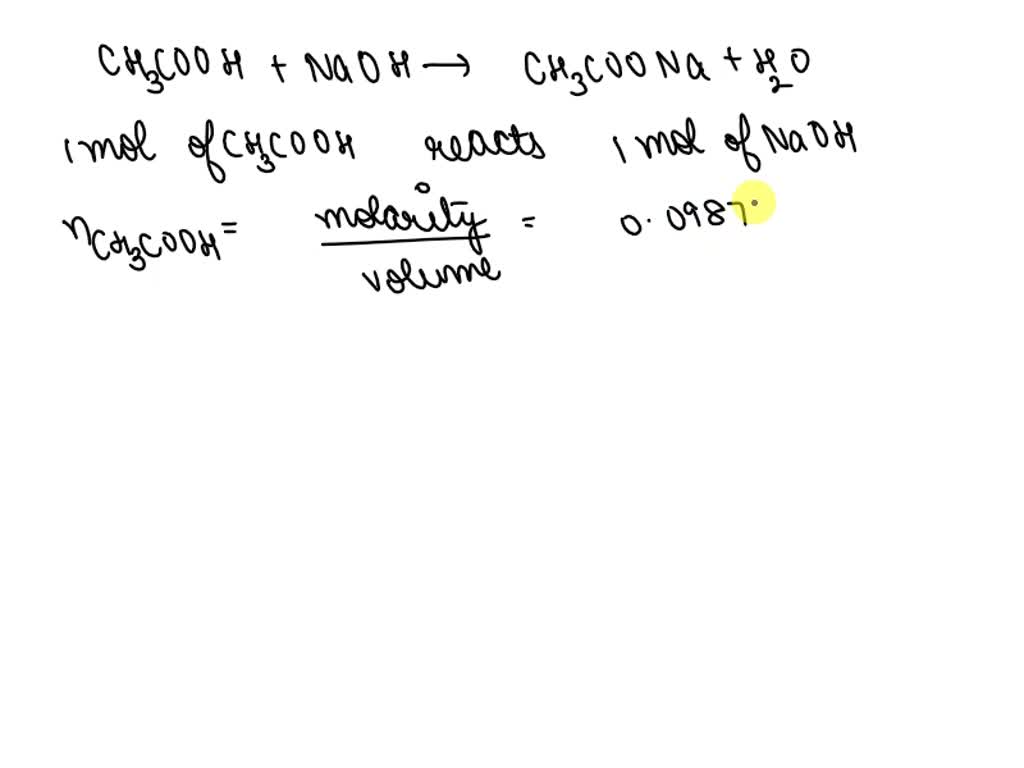 CH₃COOH + NaOH → CH₃COONa + H₂O
1 mol of CH₃COOH reacts 1 mol of NaOH
nCH₃COOH = molarity / volume = 0.0987